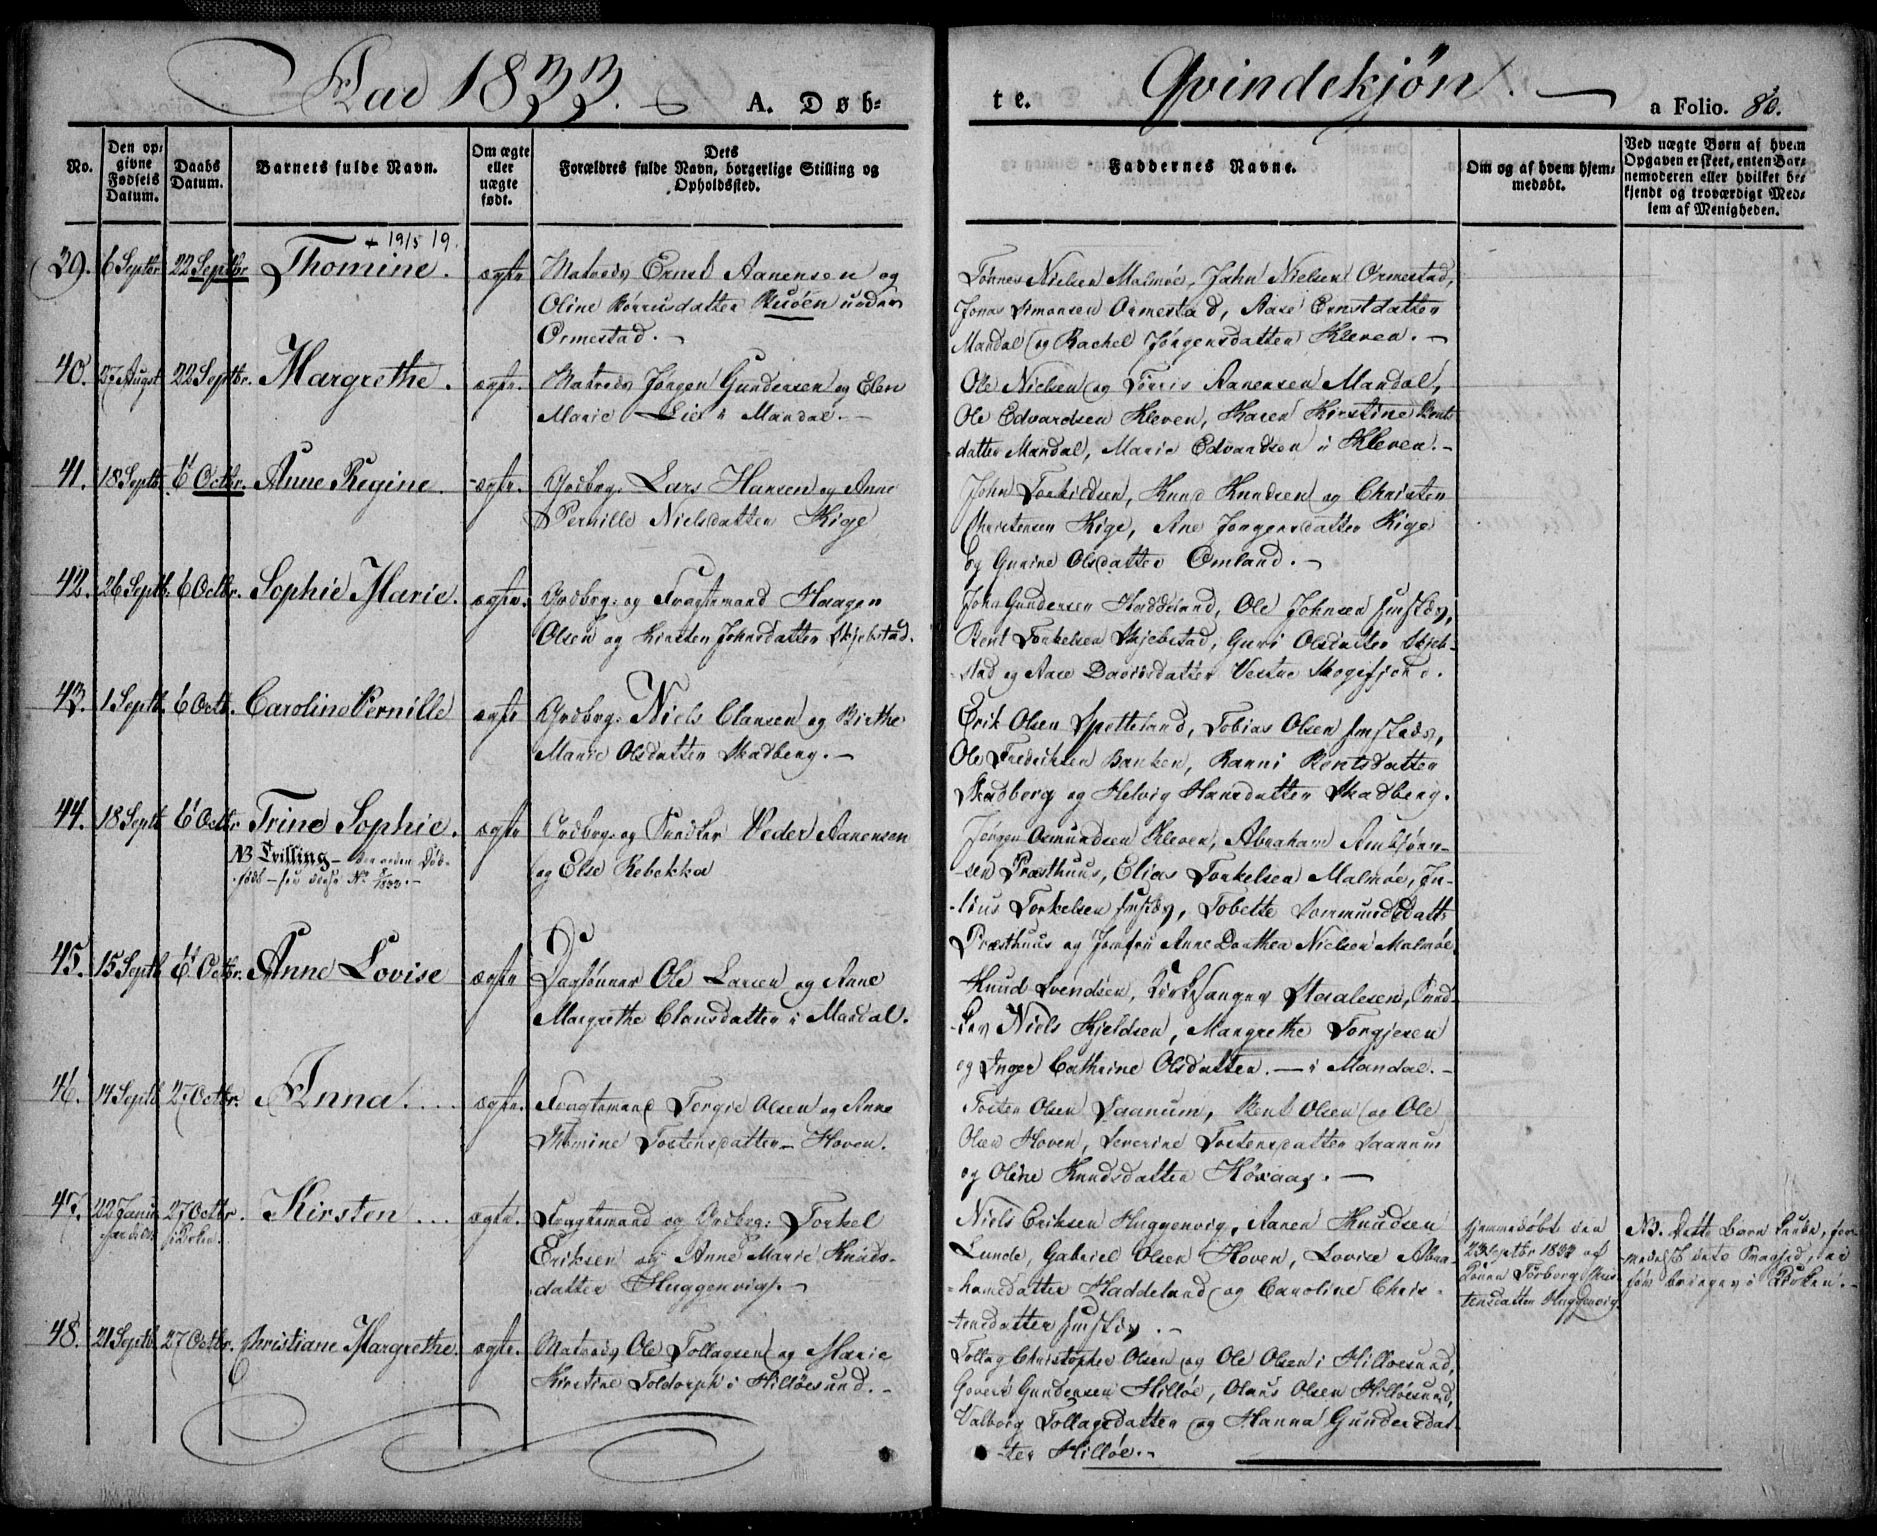 Aar 1833. A. Døb-
te. Qvindekjøn. a Folio. 80.
No.
Den op-
givne
Fødsels
Datum.
Daabs
Datum.
Barnets fulde Navn.
Om ægte
eller
uægte
født.
Dets
Forældres fulde Navn, borgerlige Stilling og
Opholdssted.
Faddernes Navne.
Om og af hvem hjem-
medøbt.
Ved uægte Børn af hvem
Opgaven er skeet, enten Bar-
nemoderen eller hvilket be-
kjendt og troværdigt Med-
lem af Menigheden.
39. 6 Septbr 22 Septbr Thomine. ægte Matrods Ernst Aanensen og
Oline Børresdatter under
Ormestad.
Tønnes Nielsen Malmøe, Jahn Nielsen Ormestad,
Jonas Simonsen Ormestad, Aase Ernstdatter
Mandal og Rachel Jørgensdatter Kleven.
40. 27 Augst 22 Septbr. Margrethe. ægte. Matrods Jørgen Gundersen og Elen
Marie Lie i Mandal.
Ole Nielsen og Tørris Aanensen Mandal,
Ole Edvardsen Kleven, Karen Kirstine Bents-
datter Mandal, Marie Edvardsen i Kleven.
41. 18 Septb. 6 Octbr. Anne Regine. ægte. Lars Hansen og Anne
Pernille Nielsdatter Kige
John Torkildsen, Knud Knudsen og Christen
Christensen Kige, Ane Jørgensdatter Kige
og Gunine Olsdatter Omland.
42. 26 Septb. 6 Octbr. Sophie Marie. ægte. og Fragtemand Haagen
Olsen og Kirsten Johnsdatter Skjebstad.
John Gundersen Haddeland, Ole Johnsen
Bent Torkelsen Skjebstad, Guri Olsdatter Skjeb-
stad og Aase Davidsdatter Vestre Skogsfjord.
43. 1 Septb. 6 Octb. Caroline Pernille ægte Niels Clausen og Birthe
Marie Olsdatter Skadberg.
Erik Olsen Spetteland, Tobias Olsen
Ole Fredriksen Banken, Ranni Bentsdatter
Skadberg og Helvig Hansdatter Skadberg.
44. 18 Septb 6 Octbr Trine Sophie. ægte og Snedker Peder Aanensen
og Else Rebekka
NB Tvilling – den anden Død-
født – 1833.
Jørgen Osmundsen Kleven, Abraham Ambjørn-
sen Præsthuus, Elias Torkelsen Malmøe, Ju-
lius Torkelsen Tobette Sommundsdatt.
Præsthuus og Jomfru Anne Dorthea Nielsen Malmøe
45. 15 Septb 6 Octbr. Anne Lovise ægte Ole Larsen og Anne
Margrethe Clausdatter i Mandal.
Knud Svendsen, Kirkesanger Staalesen, Sned-
ker Niels Kjeldsen, Margrethe Torgjesen
og Inger Cathrine Olsdatter. — i Mandal.
46. 14 Septb 27 Octbr. Anna. ægte. Fragtemand Tergie Olsen og Anne
Thomine Tostensdatter Hoven.
Tosten Olsen Saanum, Bent Olsen og Ole
Olsen Hoven, Severine Tostensdatter Saanum
og Oline Knudsdatter
47. 22 27 Octbr. i Kirken. Kirsten ægte. Fragtemand og Torkel
Eriksen og Anne Marie Knuds-
datter Huggenvig.
Niels Eriksen Huggenvig, Aanen Knudsen
Lunde, Gabriel Olsen Hoven, Lovise Abra-
hamsdatter Haddeland og Caroline Chris-
tensdatter
Hjemmedøbt den
23 Septbr 1833 af
Konen Torborg Chris-
tensdatter Huggenvig.
NB. Dette Barn
i Kirken.
48. 21 Septb. 27 Octbr. Christiane Margrethe. ægte. Matrods Ole Tollagsen og Marie
Kirstine Toldorph i Hilløesund.
Tollag Christopher Olsen og Ole Olsen i Hilløesund,
Govert Gundersen Hilløe, Olaus Olsen Hilløesund,
Valborg Tollagsdatter og Hanna Gundersdat-
ter Hilløe.